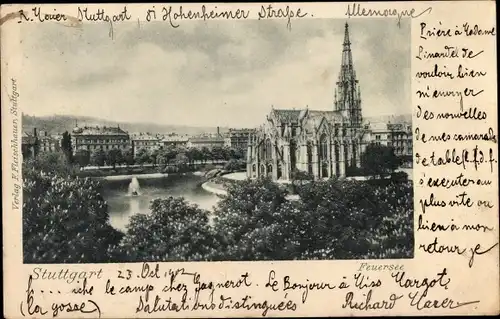 R. Mayer Stuttgart, 81 Hohenheimer Straße, Allemagne
Prière à Madame
Linardel de
vouloir bien
m'envoyer
des nouvelles
de mes camarades
de table
s'exécuter au
plus vite ou
bien à mon
retour je
Verlag v. E. Fleischhauer, Stuttgart.
Stuttgart
Feuersee
23. Oct. 1902
f.... iche le camp chez Gagnerot. Le Bonjour à Miss Margot
(la gosse) Salutations distinguées Richard Mayer